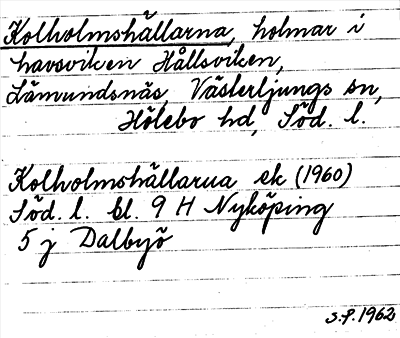 Kolholmshällarna, holmar i
havsviken Hållsviken,
Lämundsnäs, Västerljungs sn,
Hölebo hd, Söd. l.
Kolholmshällarna ek (1960)
Söd. l. bl. 9 H Nyköping
5 j Dalbyö
S.P. 1962